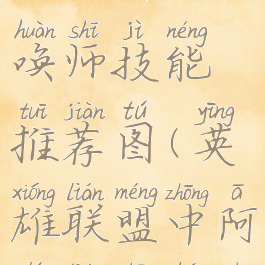 huàn shī jì néng
唤师技能
tuī jiàn tú yīng
推荐图(英
xióng lián méng zhōng ā
雄联盟中阿